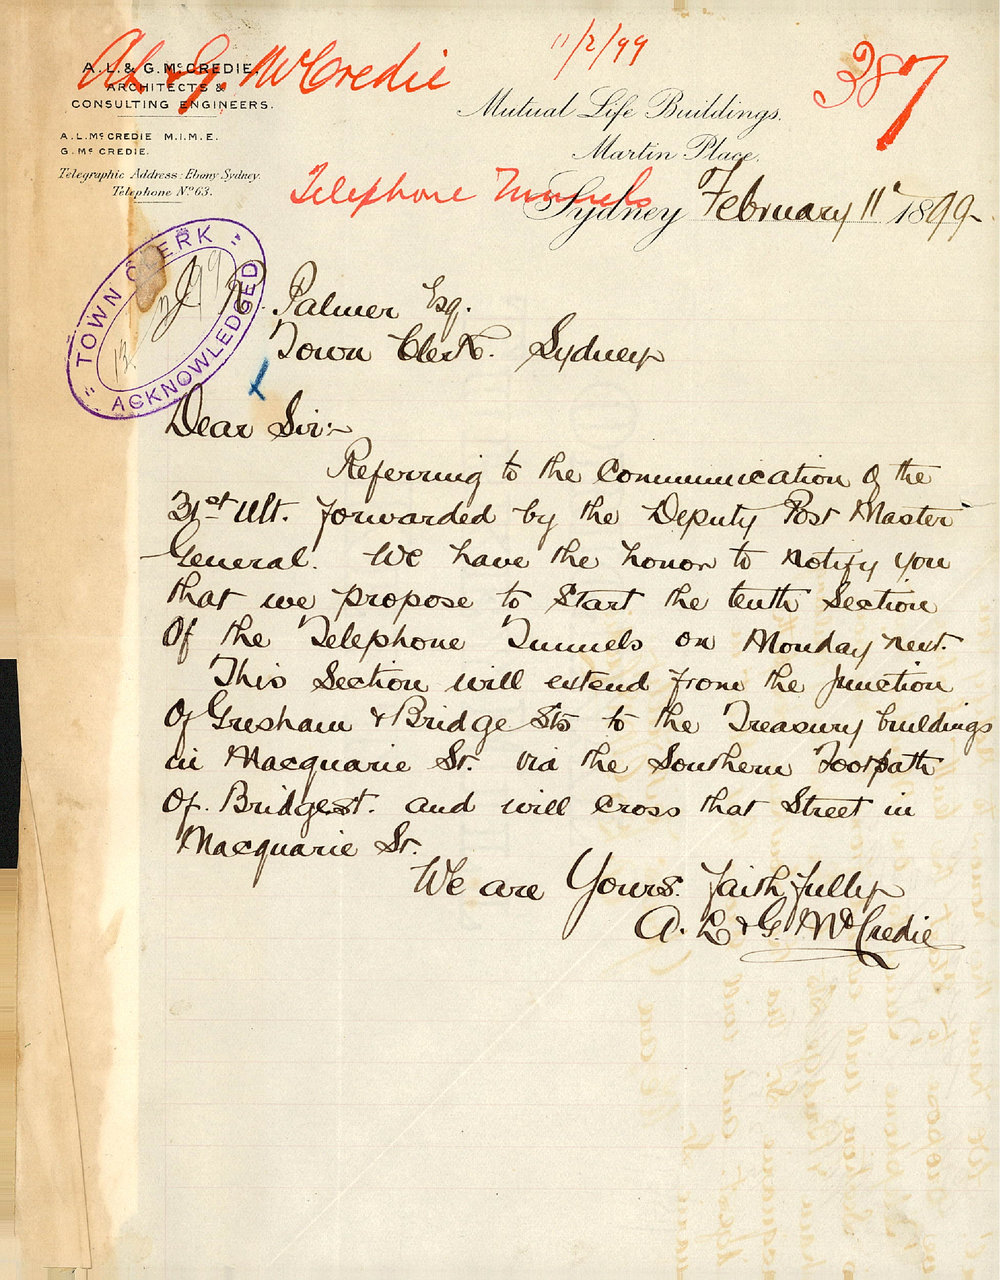 A. L. & G. McCredie
11/2/99
387
A. L. & G. McCREDIE.
ARCHITECTS &
CONSULTING ENGINEERS.
A. L. McCREDIE M.I.M.E.
G. Mc CREDIE.
Telegraphic Address: Ebony Sydney.
Telephone No 63.
Mutual Life Buildings,
Martin Place,
Telephone Tunnels
Sydney February 11th 1899
TOWN CLERK
ACKNOWLEDGED
J. H. Palmer Esq.
Town Clerk. Sydney
x
Dear Sir:-
Referring to the Communication of the
31st Ult. forwarded by the Deputy Post Master
General. We have the honor to notify you
that we propose to Start the tenth Section
Of the Telephone Tunnels on Monday next.
This Section will extend from the Junction
Of Gresham & Bridge Sts to the Treasury buildings
in Macquarie St. via the Southern Footpath
Of. Bridge St. and will cross that Street in
Macquarie St.
We are Yours. faithfully
A. L. & G. McCredie